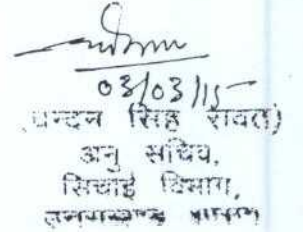 03/03/15
चन्दन सिंह रावत)
अनु सचिव,
सिंचाई विभाग,
उत्तराखण्ड शासन